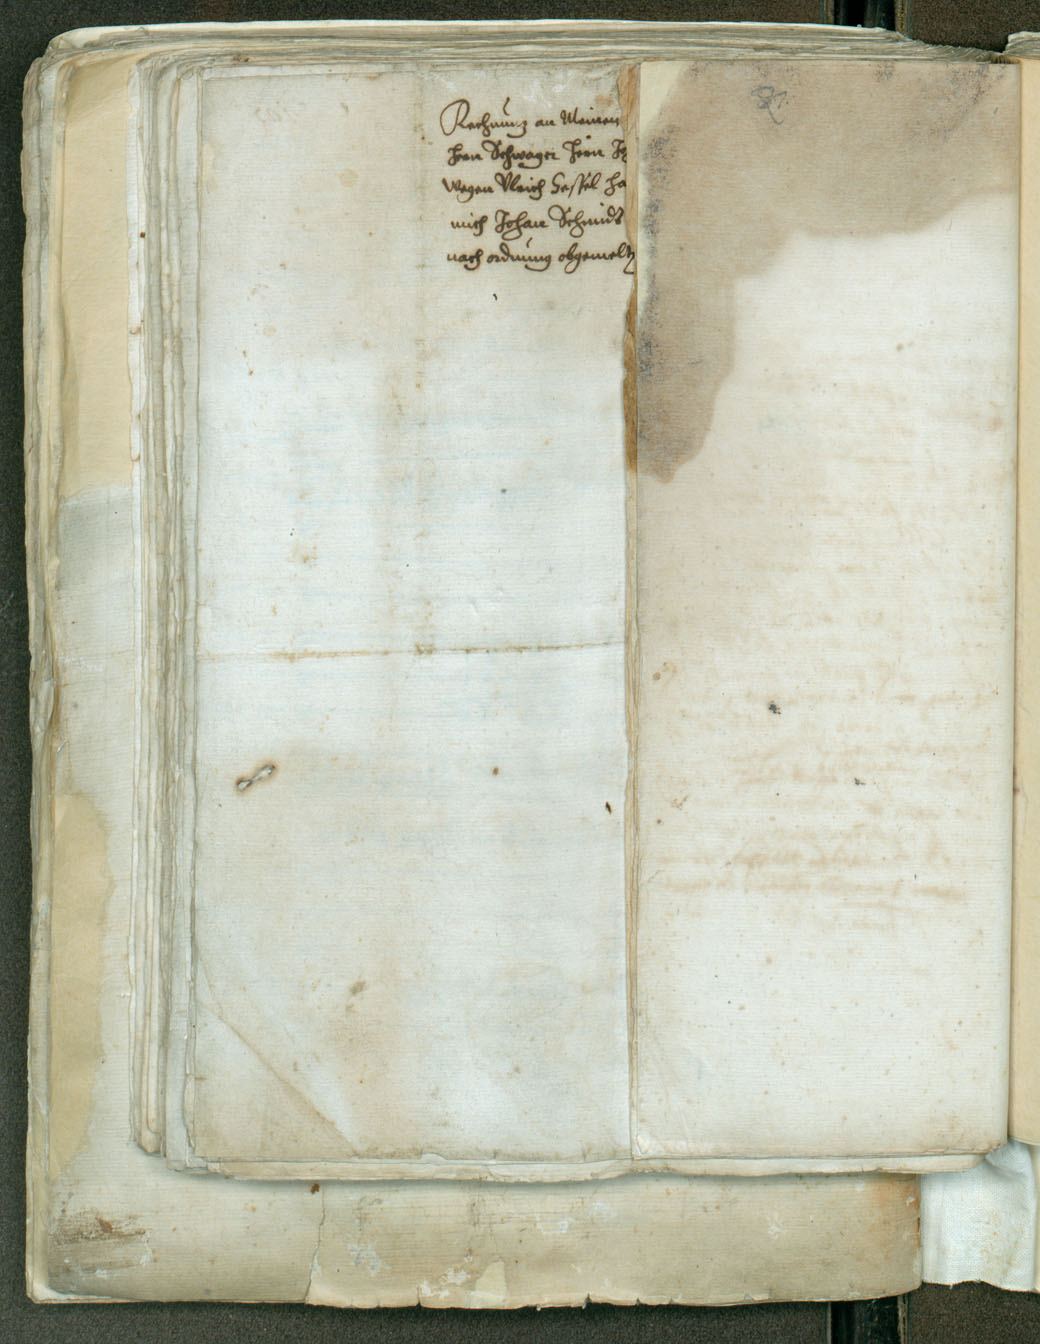 Rechnung an Meinen
hern Schwager hern Jo
wegen Vlrich Hassel ha
mich Johan Schmidt
nach ordnung obgemelt